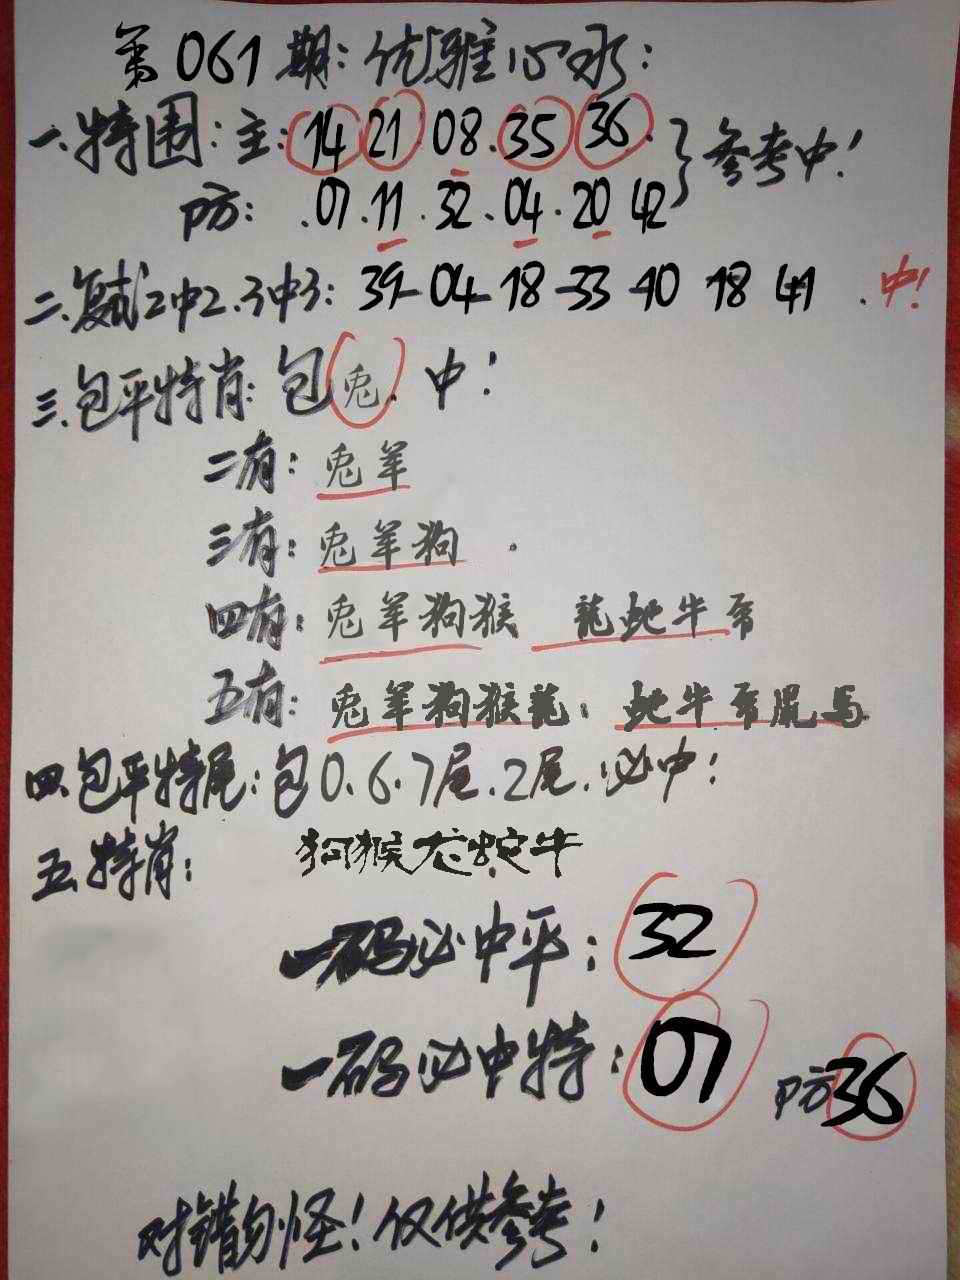 第061期:优雅心水:
一.特围:主:14 21.08.35 36.}参考中!
防:.07.11.32.04.20 42
二.复试2中2.3中3:39-04-18-33-10 18 41.中!
三.包平特肖:包兔.中!
二有:兔羊
三有:兔羊狗.
四有:兔羊狗猴 龍蛇牛
五有:兔羊狗猴龍;蛇牛鼠馬
四.包平特尾:包0.6.7尾.2尾.必中!
五.特肖:狗猴龙蛇牛
一码必中平:32
一码必中特:07 防36
对错勿怪!仅供参考!